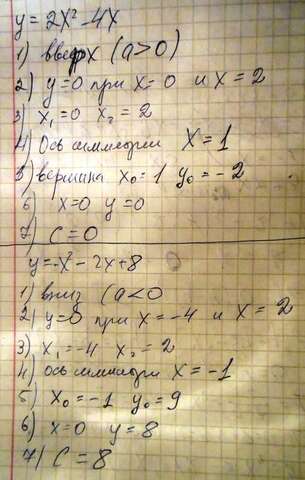 y = 2x² - 4x
1) вверх (a > 0)
2) y = 0 при x = 0 и x = 2
3) x₁ = 0 x₂ = 2
4) Ось симметрии x = 1
5) вершина x₀ = 1 y₀ = -2
6) x = 0 y = 0
7) C = 0
y = -x² - 2x + 8
1) вниз (a < 0
2) y = 0 при x = -4 и x = 2
3) x₁ = -4 x₂ = 2
4) ось симметрии x = -1
5) x₀ = -1 y₀ = 9
6) x = 0 y = 8
7) C = 8